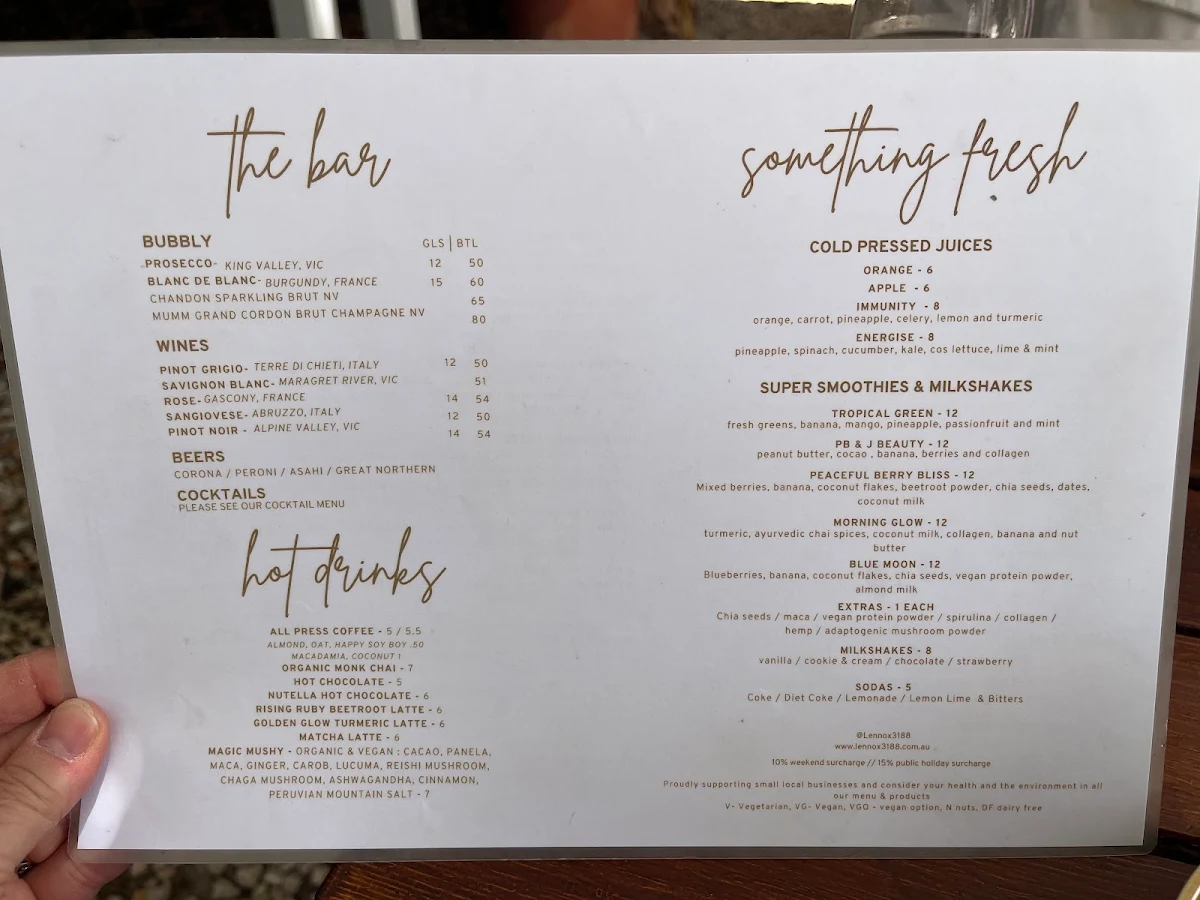 the bar
BUBBLY GLS | BTL
PROSECCO- KING VALLEY, VIC 12 50
BLANC DE BLANC- BURGUNDY, FRANCE 15 60
CHANDON SPARKLING BRUT NV 65
MUMM GRAND CORDON BRUT CHAMPAGNE NV 80
WINES
PINOT GRIGIO- TERRE DI CHIETI, ITALY 12 50
SAVIGNON BLANC- MARAGRET RIVER, VIC 51
ROSE- GASCONY, FRANCE 14 54
SANGIOVESE- ABRUZZO, ITALY 12 50
PINOT NOIR - ALPINE VALLEY, VIC 14 54
BEERS
CORONA / PERONI / ASAHI / GREAT NORTHERN
COCKTAILS
PLEASE SEE OUR COCKTAIL MENU
hot drinks
ALL PRESS COFFEE - 5 / 5.5
ALMOND, OAT, HAPPY SOY BOY .50
MACADAMIA, COCONUT 1
ORGANIC MONK CHAI - 7
HOT CHOCOLATE - 5
NUTELLA HOT CHOCOLATE - 6
RISING RUBY BEETROOT LATTE - 6
GOLDEN GLOW TURMERIC LATTE - 6
MATCHA LATTE - 6
MAGIC MUSHY - ORGANIC & VEGAN : CACAO, PANELA,
MACA, GINGER, CAROB, LUCUMA, REISHI MUSHROOM,
CHAGA MUSHROOM, ASHWAGANDHA, CINNAMON,
PERUVIAN MOUNTAIN SALT - 7
something fresh
COLD PRESSED JUICES
ORANGE - 6
APPLE - 6
IMMUNITY - 8
orange, carrot, pineapple, celery, lemon and turmeric
ENERGISE - 8
pineapple, spinach, cucumber, kale, cos lettuce, lime & mint
SUPER SMOOTHIES & MILKSHAKES
TROPICAL GREEN - 12
fresh greens, banana, mango, pineapple, passionfruit and mint
PB & J BEAUTY - 12
peanut butter, cocao , banana, berries and collagen
PEACEFUL BERRY BLISS - 12
Mixed berries, banana, coconut flakes, beetroot powder, chia seeds, dates,
coconut milk
MORNING GLOW - 12
turmeric, ayurvedic chai spices, coconut milk, collagen, banana and nut
butter
BLUE MOON - 12
Blueberries, banana, coconut flakes, chia seeds, vegan protein powder,
almond milk
EXTRAS - 1 EACH
Chia seeds / maca / vegan protein powder / spirulina / collagen /
hemp / adaptogenic mushroom powder
MILKSHAKES - 8
vanilla / cookie & cream / chocolate / strawberry
SODAS - 5
Coke / Diet Coke / Lemonade / Lemon Lime & Bitters
@Lennox3188
www.lennox3188.com.au
10% weekend surcharge // 15% public holiday surcharge
Proudly supporting small local businesses and consider your health and the environment in all
our menu & products
V- Vegetarian, VG- Vegan, VGO - vegan option, N nuts, DF dairy free